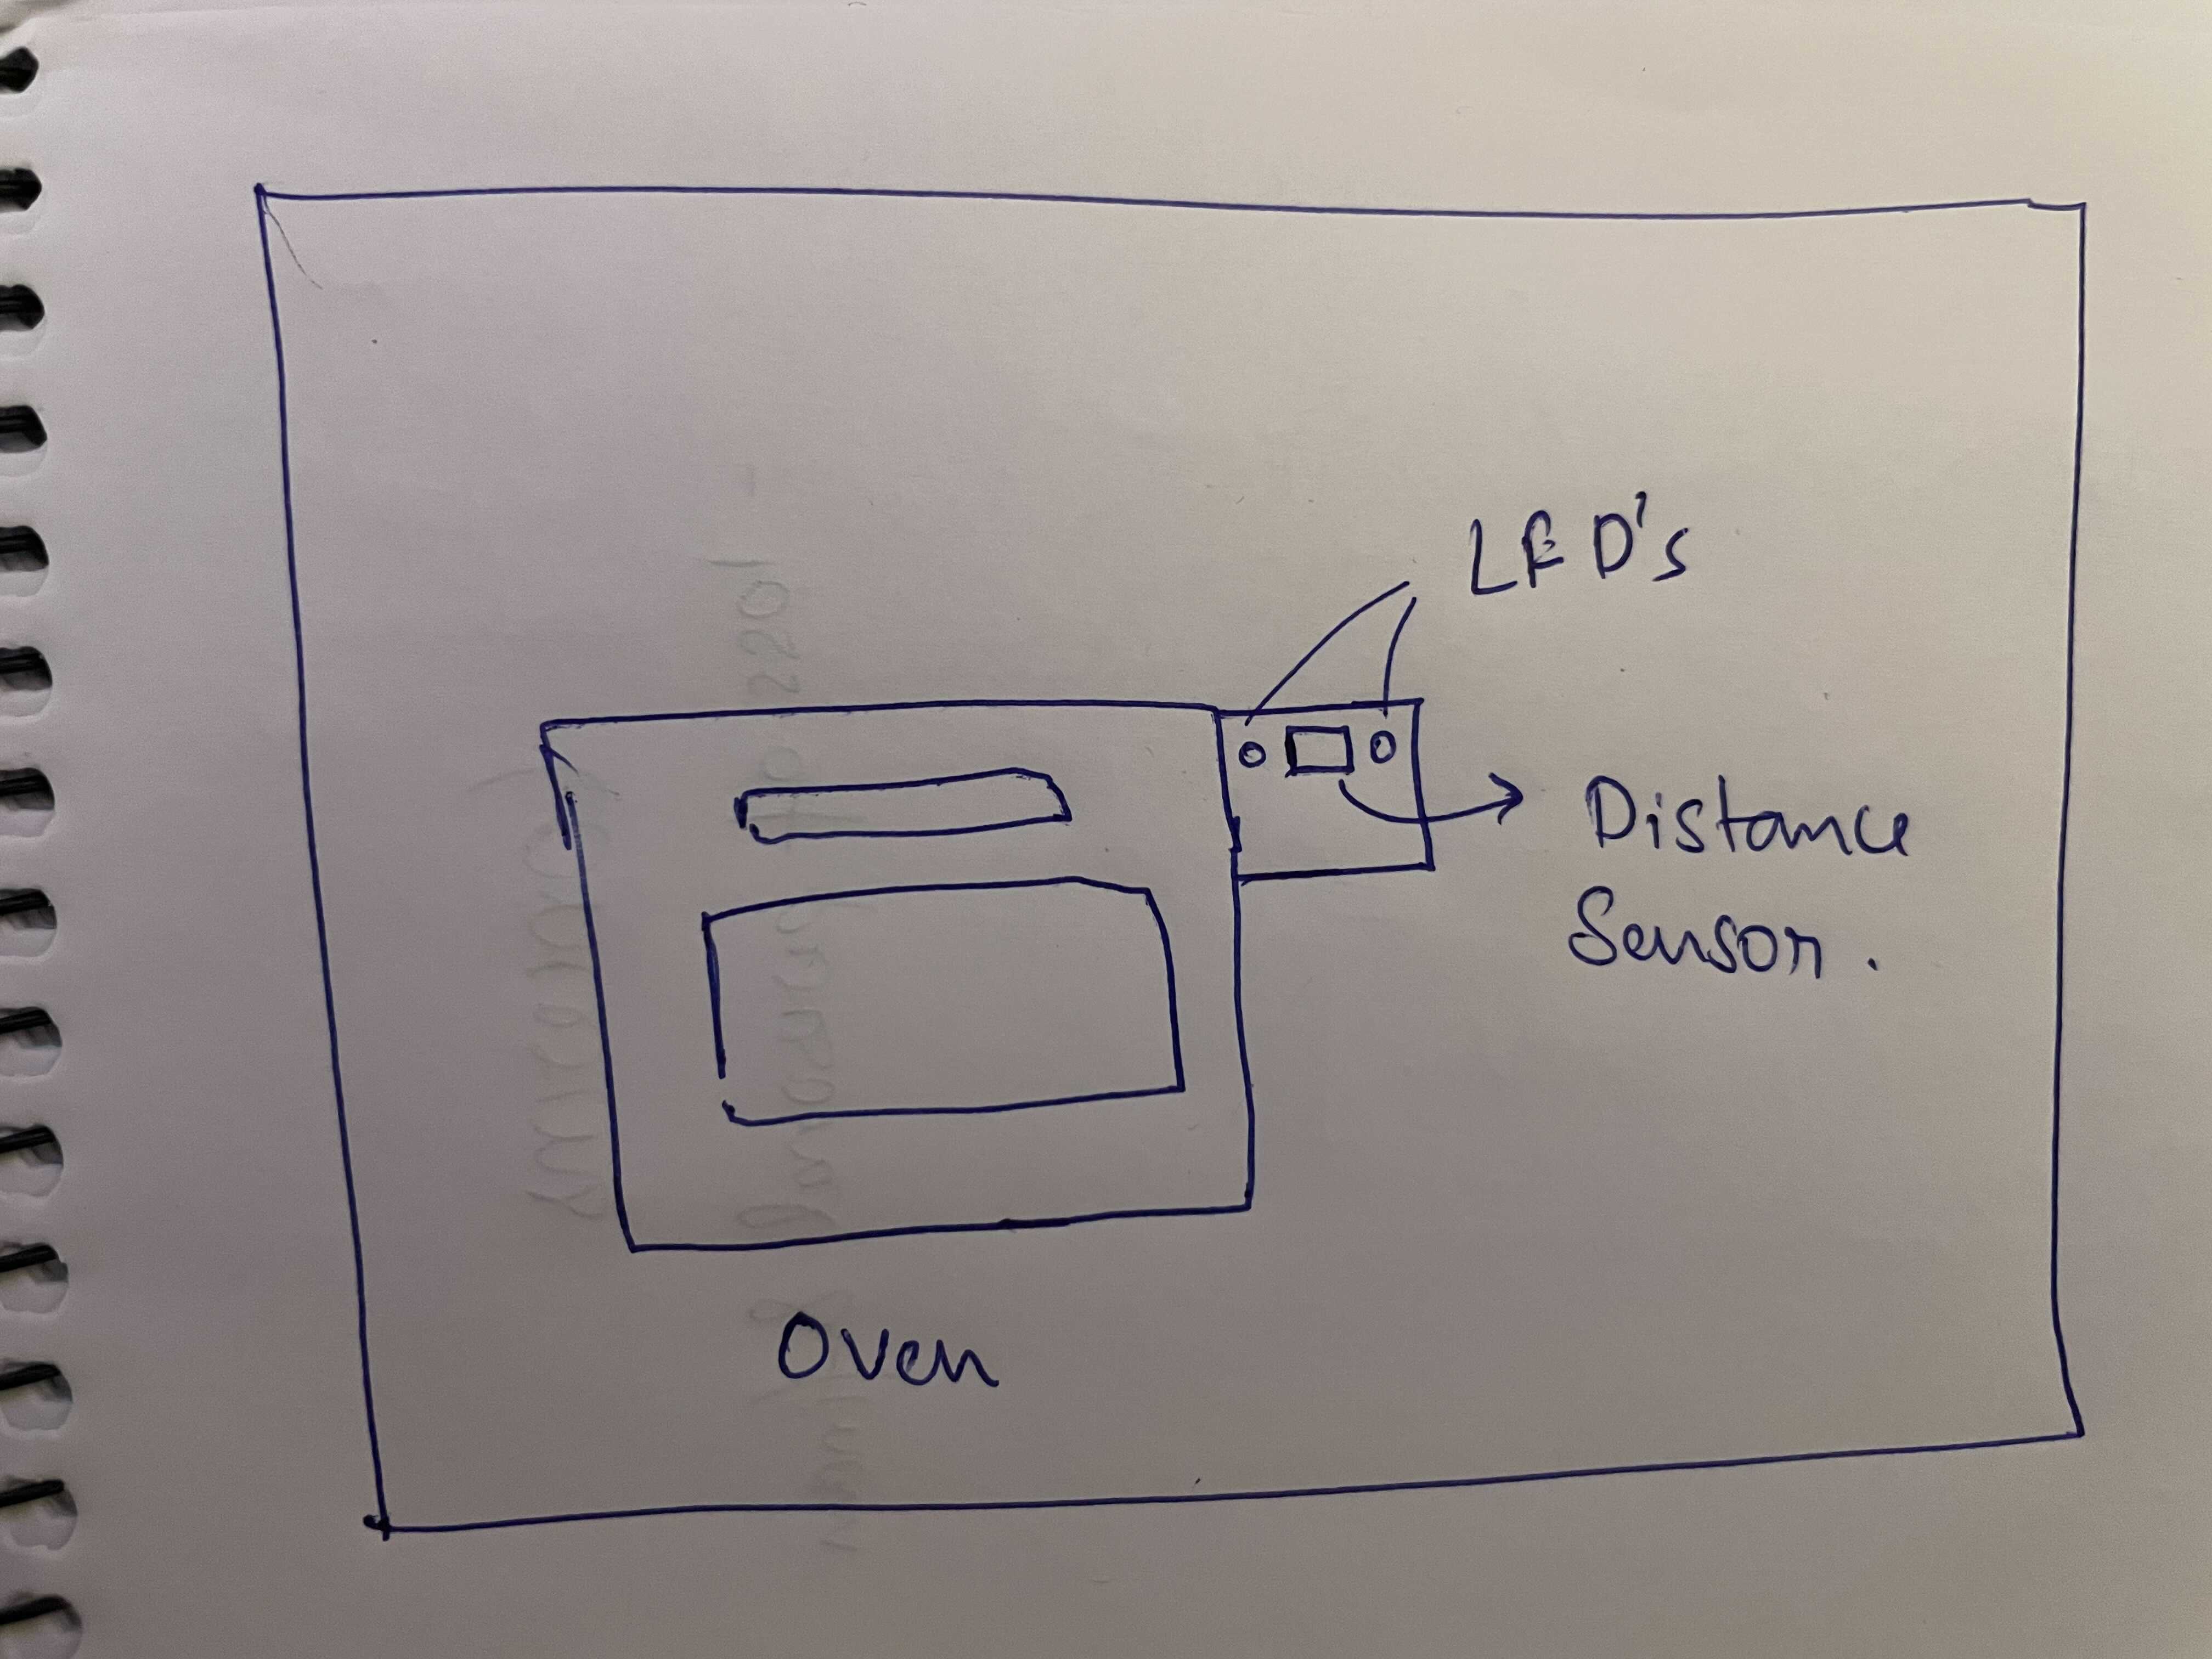 LED's
Distance
Sensor.
Oven